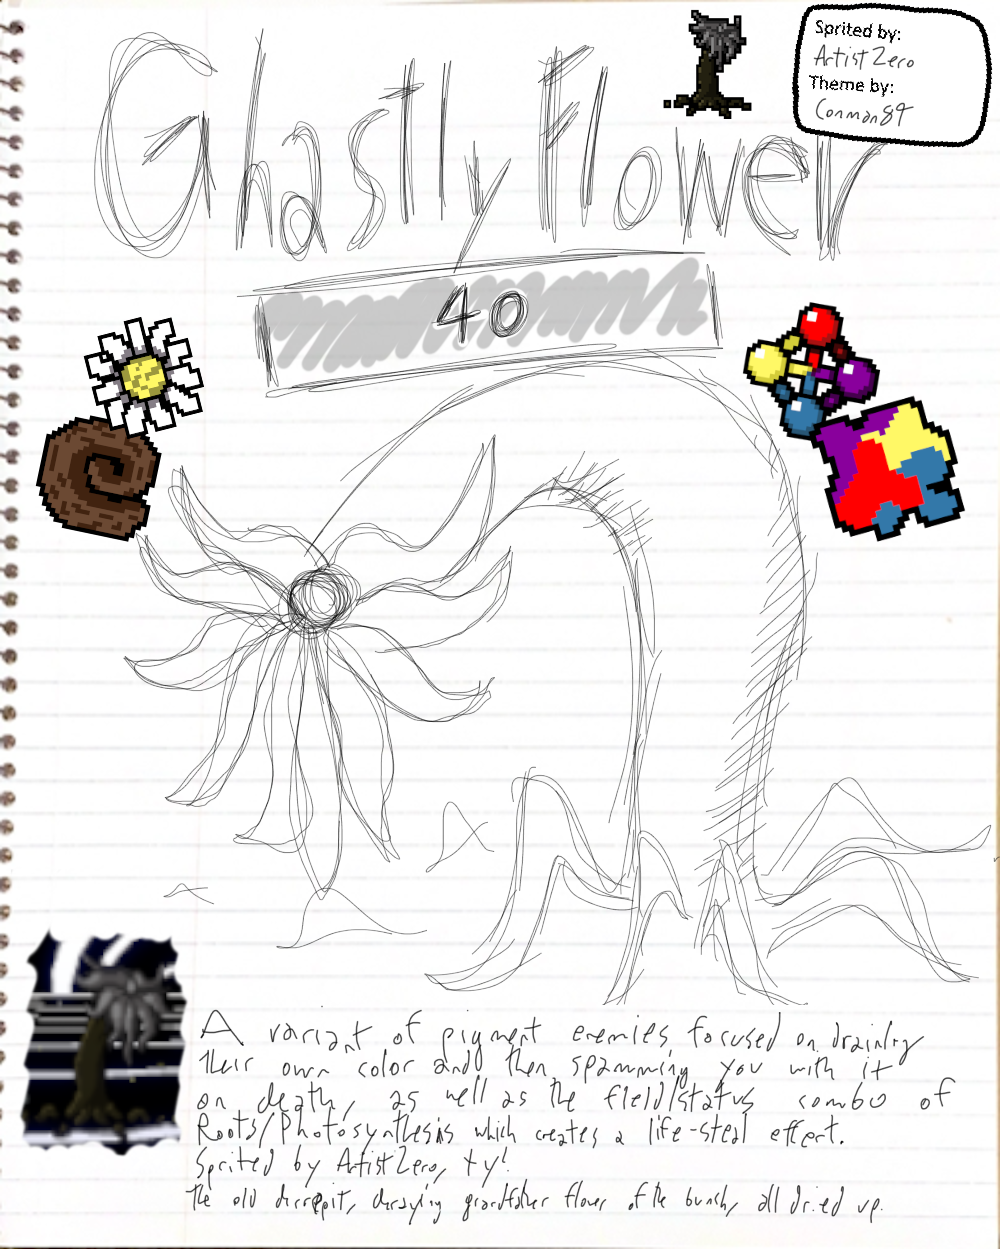 Ghastly Flower
Sprited by:
ArtistZero
Theme by:
Conman84
40
A variant of pigment enemies focused on draining
their own color and then spamming you with it
on death, as well as the field/status combo of
Roots/Photosynthesis which creates a life-steal effect.
Sprited by ArtistZero, ty!
The old decrepit, decaying grandfather flower of the bunch, all dried up.